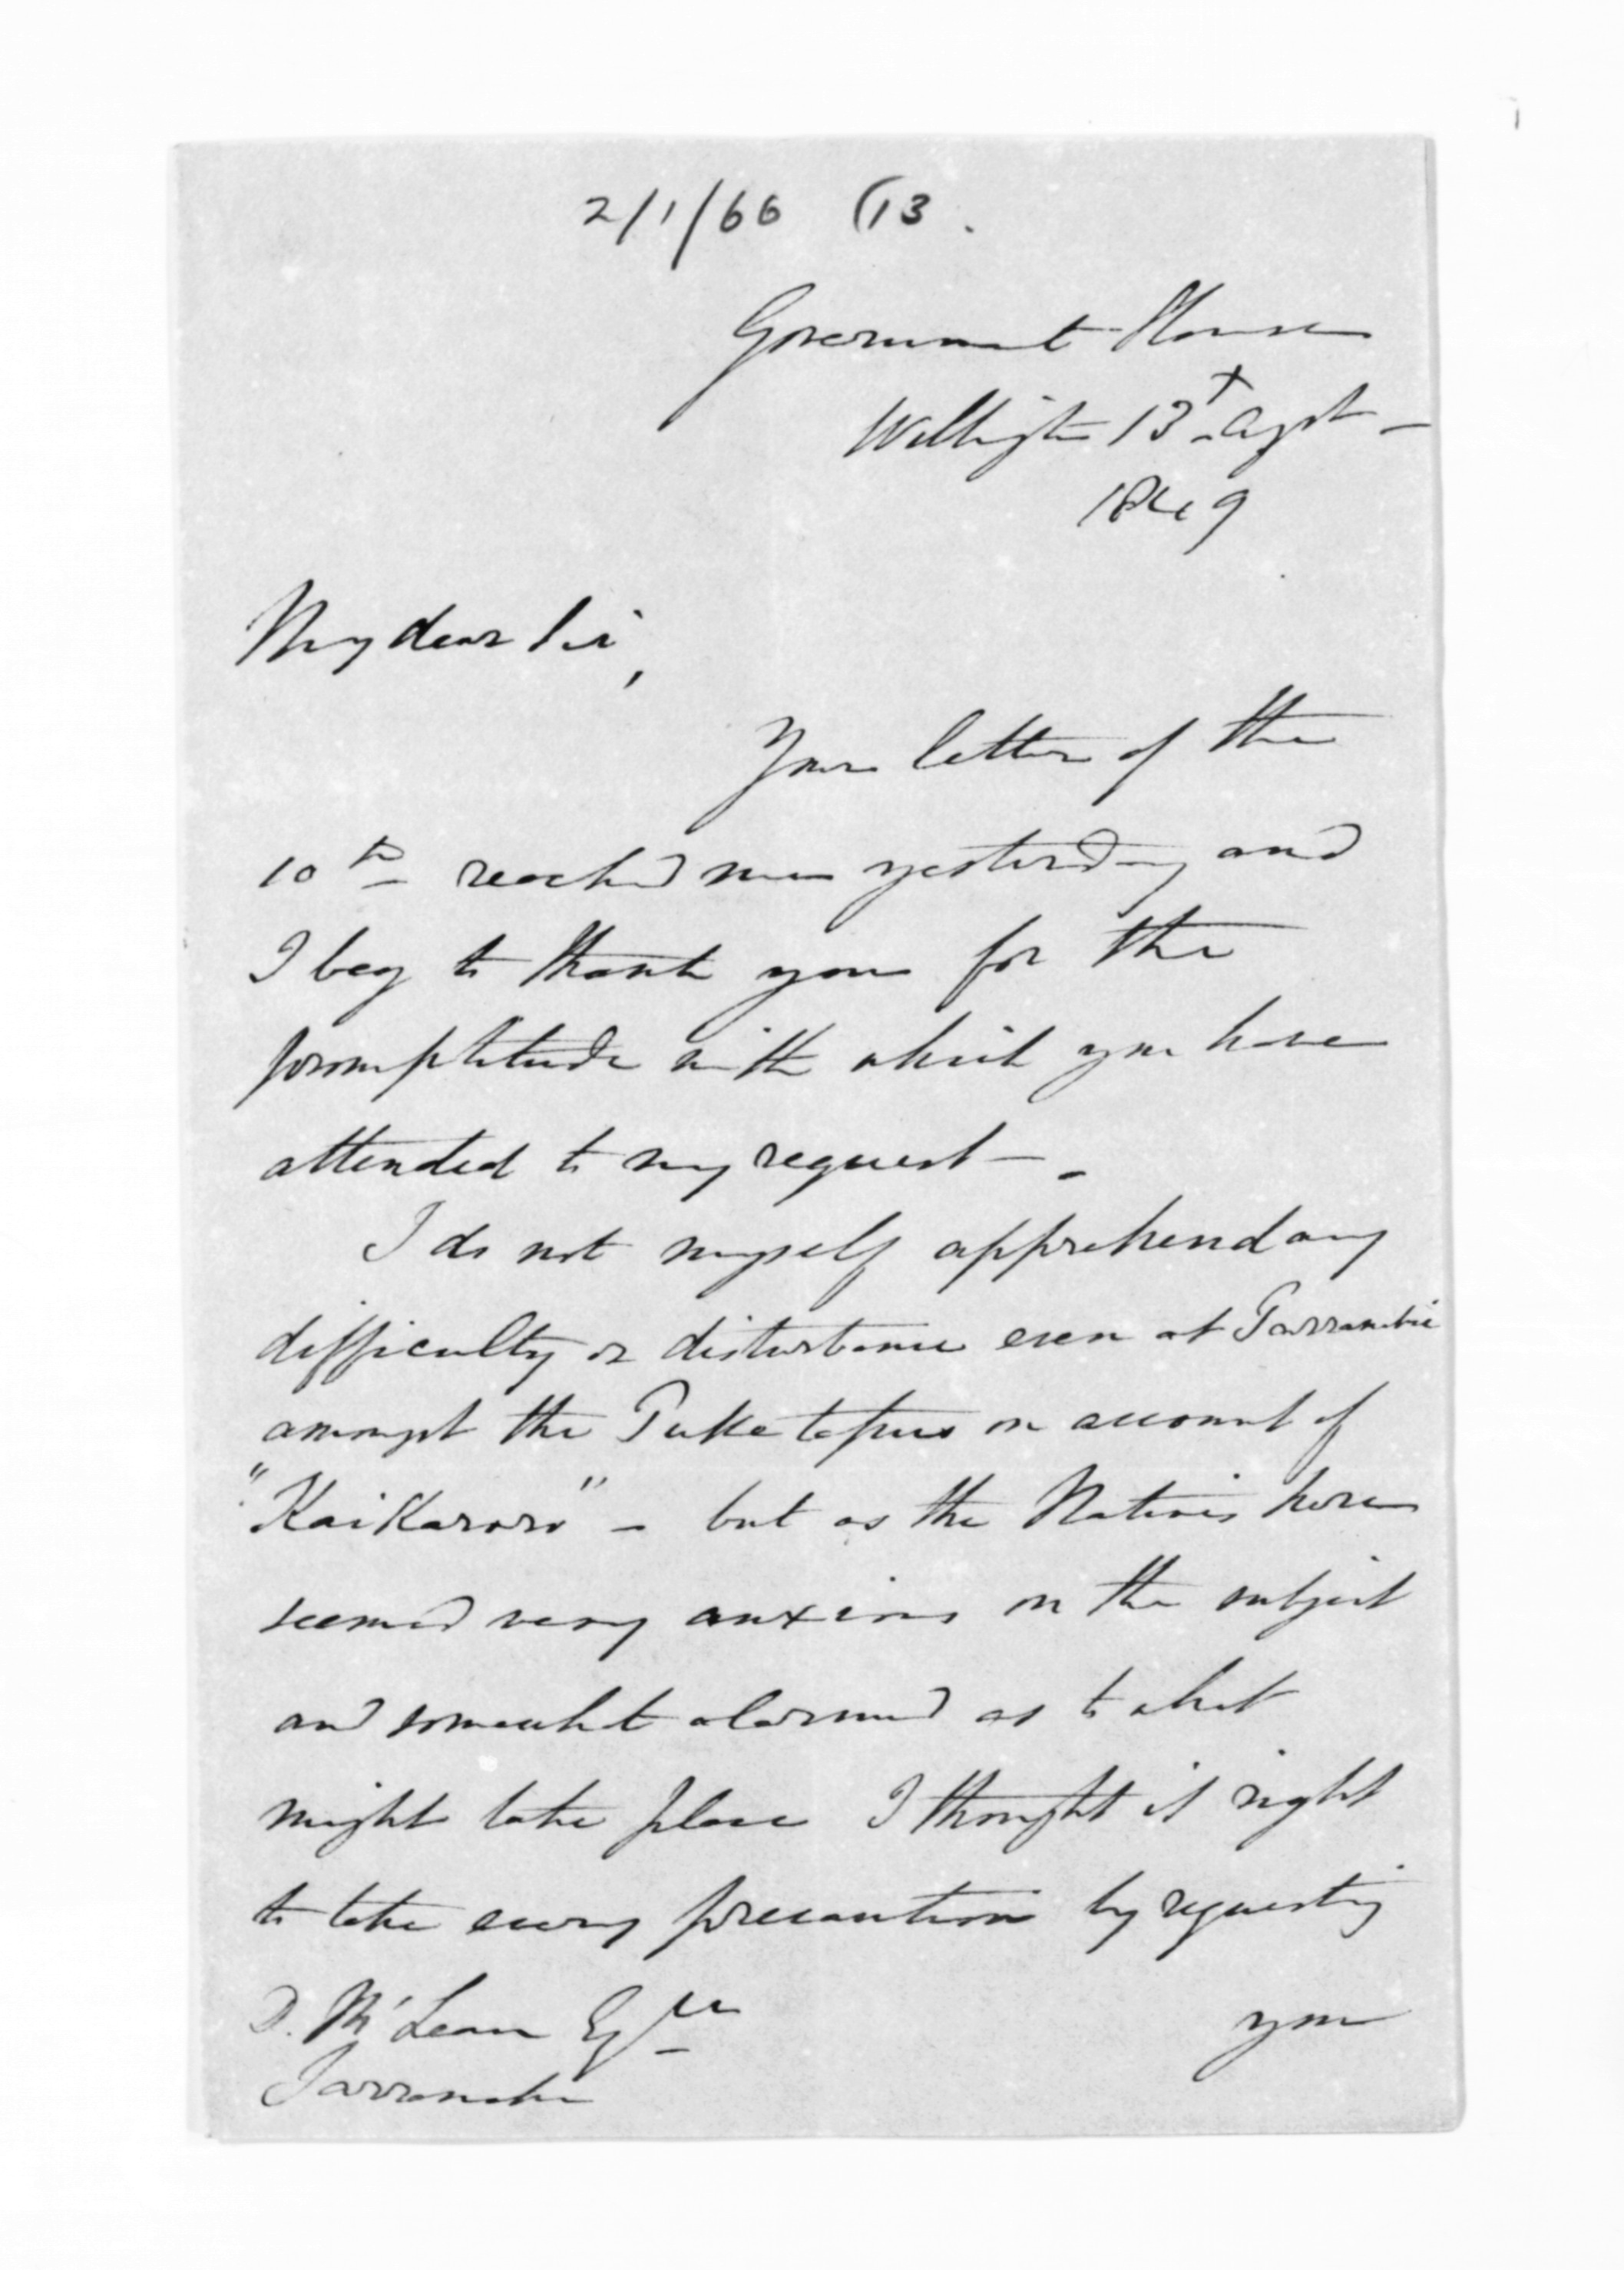 2/1/66 (13.
Government House
Wellington 13th Augst
1849
My dear Sir,
Your letter of the
10th reached me yesterday and
I beg to thank you for the
promptitude with which you have
attended to my request.
I do not myself apprehend any
difficulty or disturbance even at
amongst the Puketapus on account of
"KaiKaroro" - but as the Natives here
seemed very anxious on the subject
and somewhat alarmed as to what
might take place I thought it right
to take every precaution by requesting
D. McLean Esqre
you